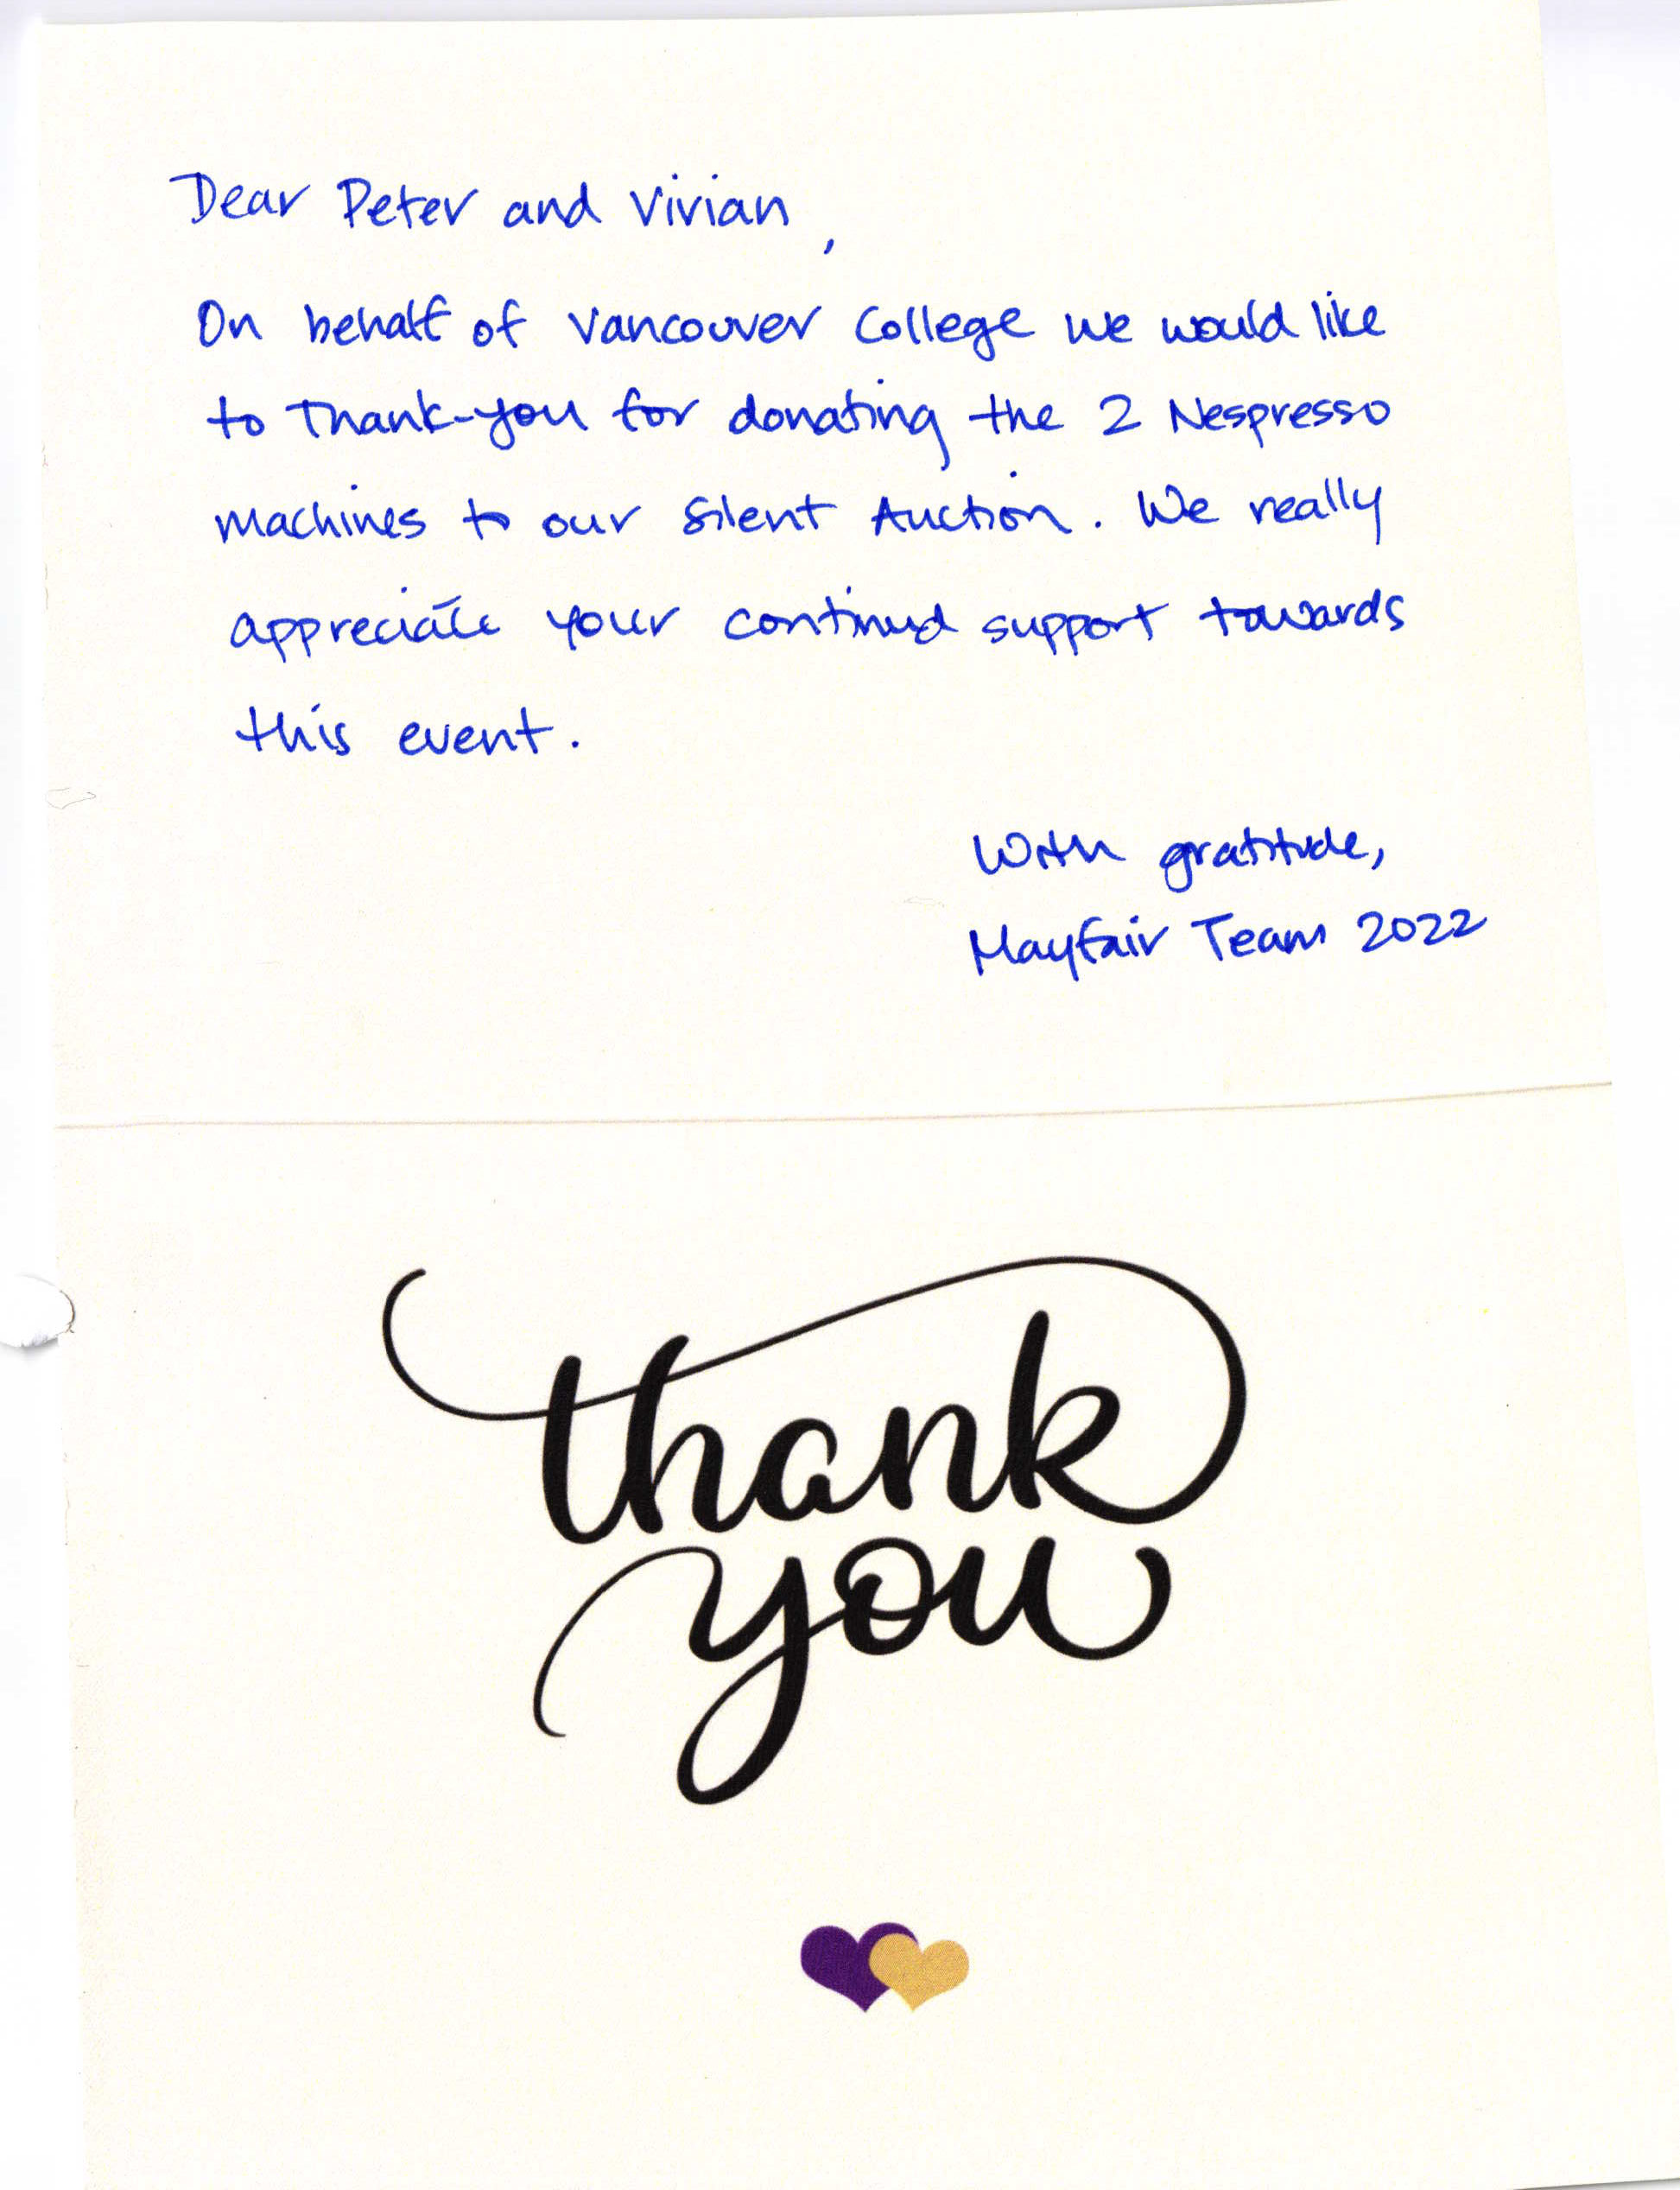 Dear Peter and Vivian,
On behalf of Vancouver College we would like
to Thank-you for donating the 2 Nespresso
machines to our Silent Auction. We really
appreciate your continued support towards
this event.
With gratitude,
Mayfair Team 2022
thank
you